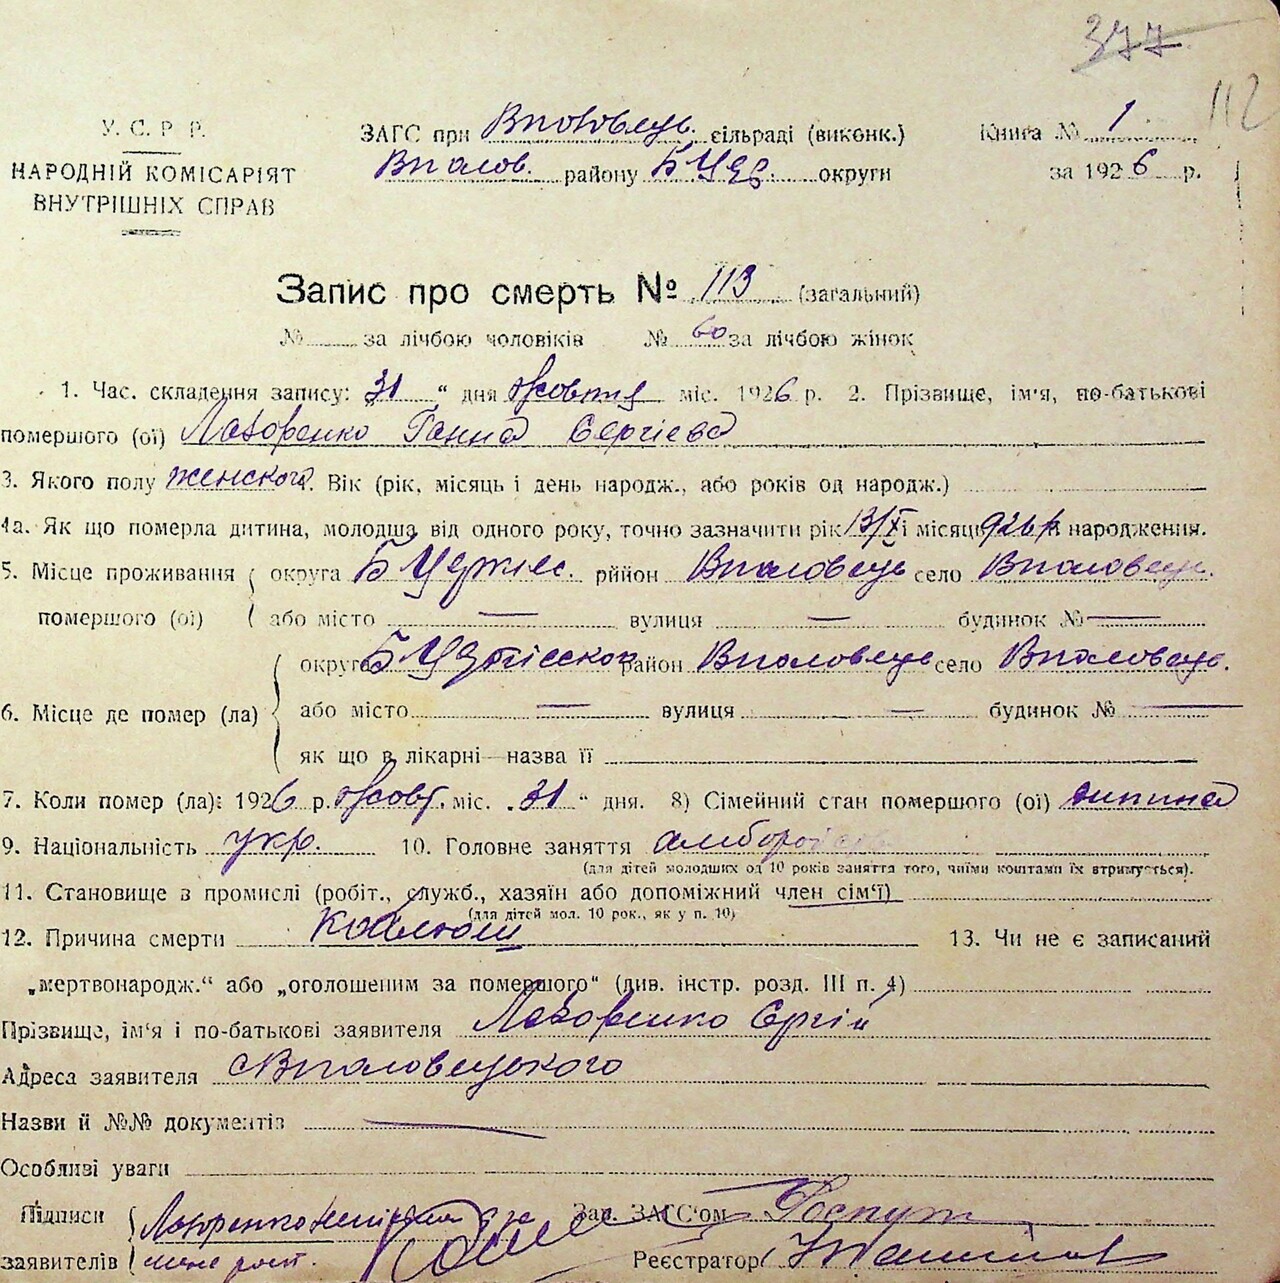 377
112
У. С. Р. Р.
НАРОДНІЙ КОМІСАРІЯТ
ВНУТРІШНІХ СПРАВ
ЗАГС при Вполовець. сільраді (виконк.)
Вполов. району Б Цер. округи
Книга № 1
за 1926 р.
Запис про смерть № 113 (загальний)
№ за лічбою чоловіків № 60 за лічбою жінок
1. Час складення запису: 31 “ дня Жовтня міс. 1926 р. 2. Прізвище, ім'я, по-батькові
помершого (ої) Лазоренко Ганна Сергієва
3. Якого полу женского. Вік (рік, місяць і день народж., або років од народж.)
4а. Як що померла дитина, молодша від одного року, точно зазначити рік 13/X і місяць 926 р народження.
5. Місце проживання округа Б Церкієс. рййон Вполовець село Вполовець.
помершого (ої) або місто — вулиця — будинок № —
6. Місце де помер (ла) округа район Вполовець село Вполовець.
або місто — вулиця — будинок № —
як що в лікарні—назва її
7. Коли помер (ла): 1926 р. Жовт. міс. „31“ дня. 8) Сімейний стан помершого (ої) дитина
9. Національність укр. 10. Головне заняття
(для дітей молодших од 10 років заняття того, чиїми коштами їх втримується).
11. Становище в промислі (робіт., служб., хазяїн або допоміжний член сім'ї)
(для дітей мол. 10 рок., як у п. 10)
12. Причина смерти Коклюш 13. Чи не є записаний
„мертвонародж.“ або „оголошеним за помершого“ (див. інстр. розд. III п. 4)
Прізвище, ім'я і по-батькові заявителя Лазоренко Сергій
Адреса заявителя Вполовецького
Назви й №№ документів —
Особливі уваги
Підписи Лазоренко Зав. ЗАГС'ом
заявителів Реєстратор